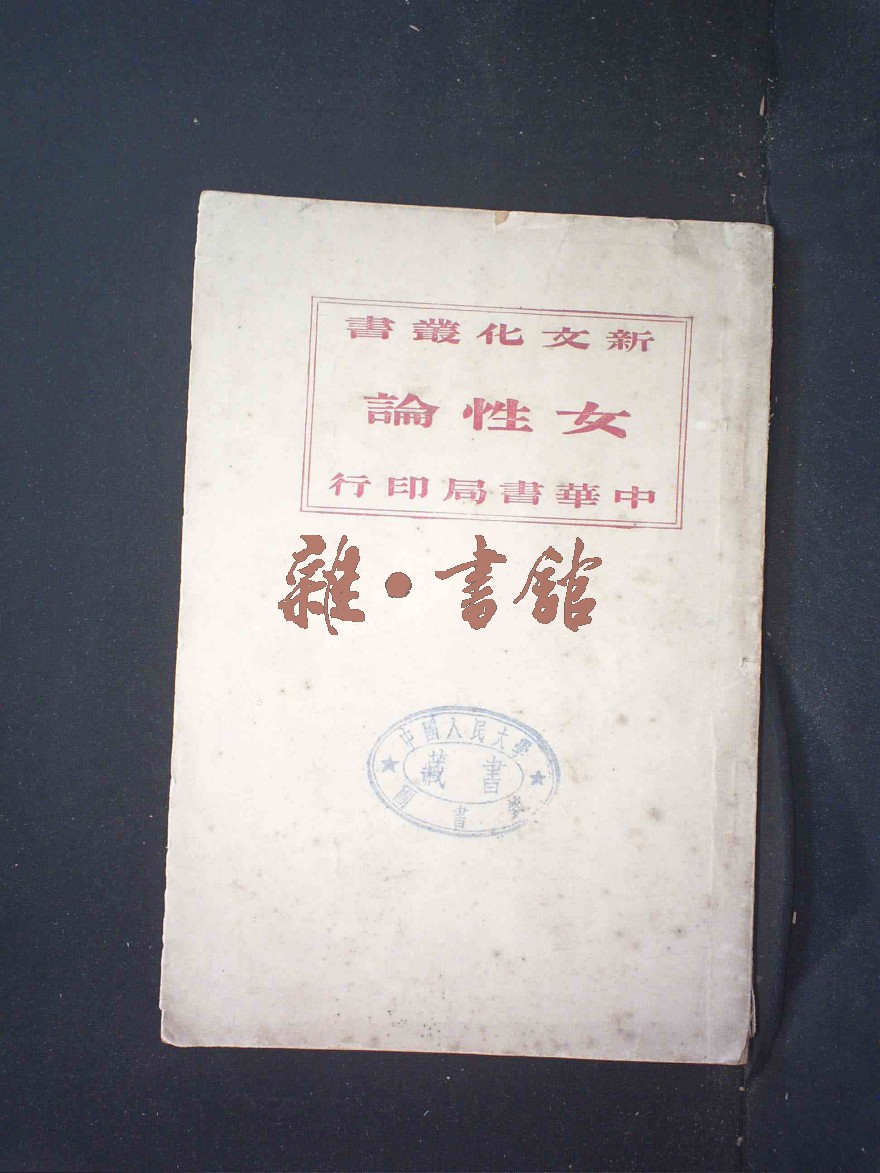 新文化叢書
女性論
中華書局印行
雜·書館
中國人民大學
藏書
圖書館